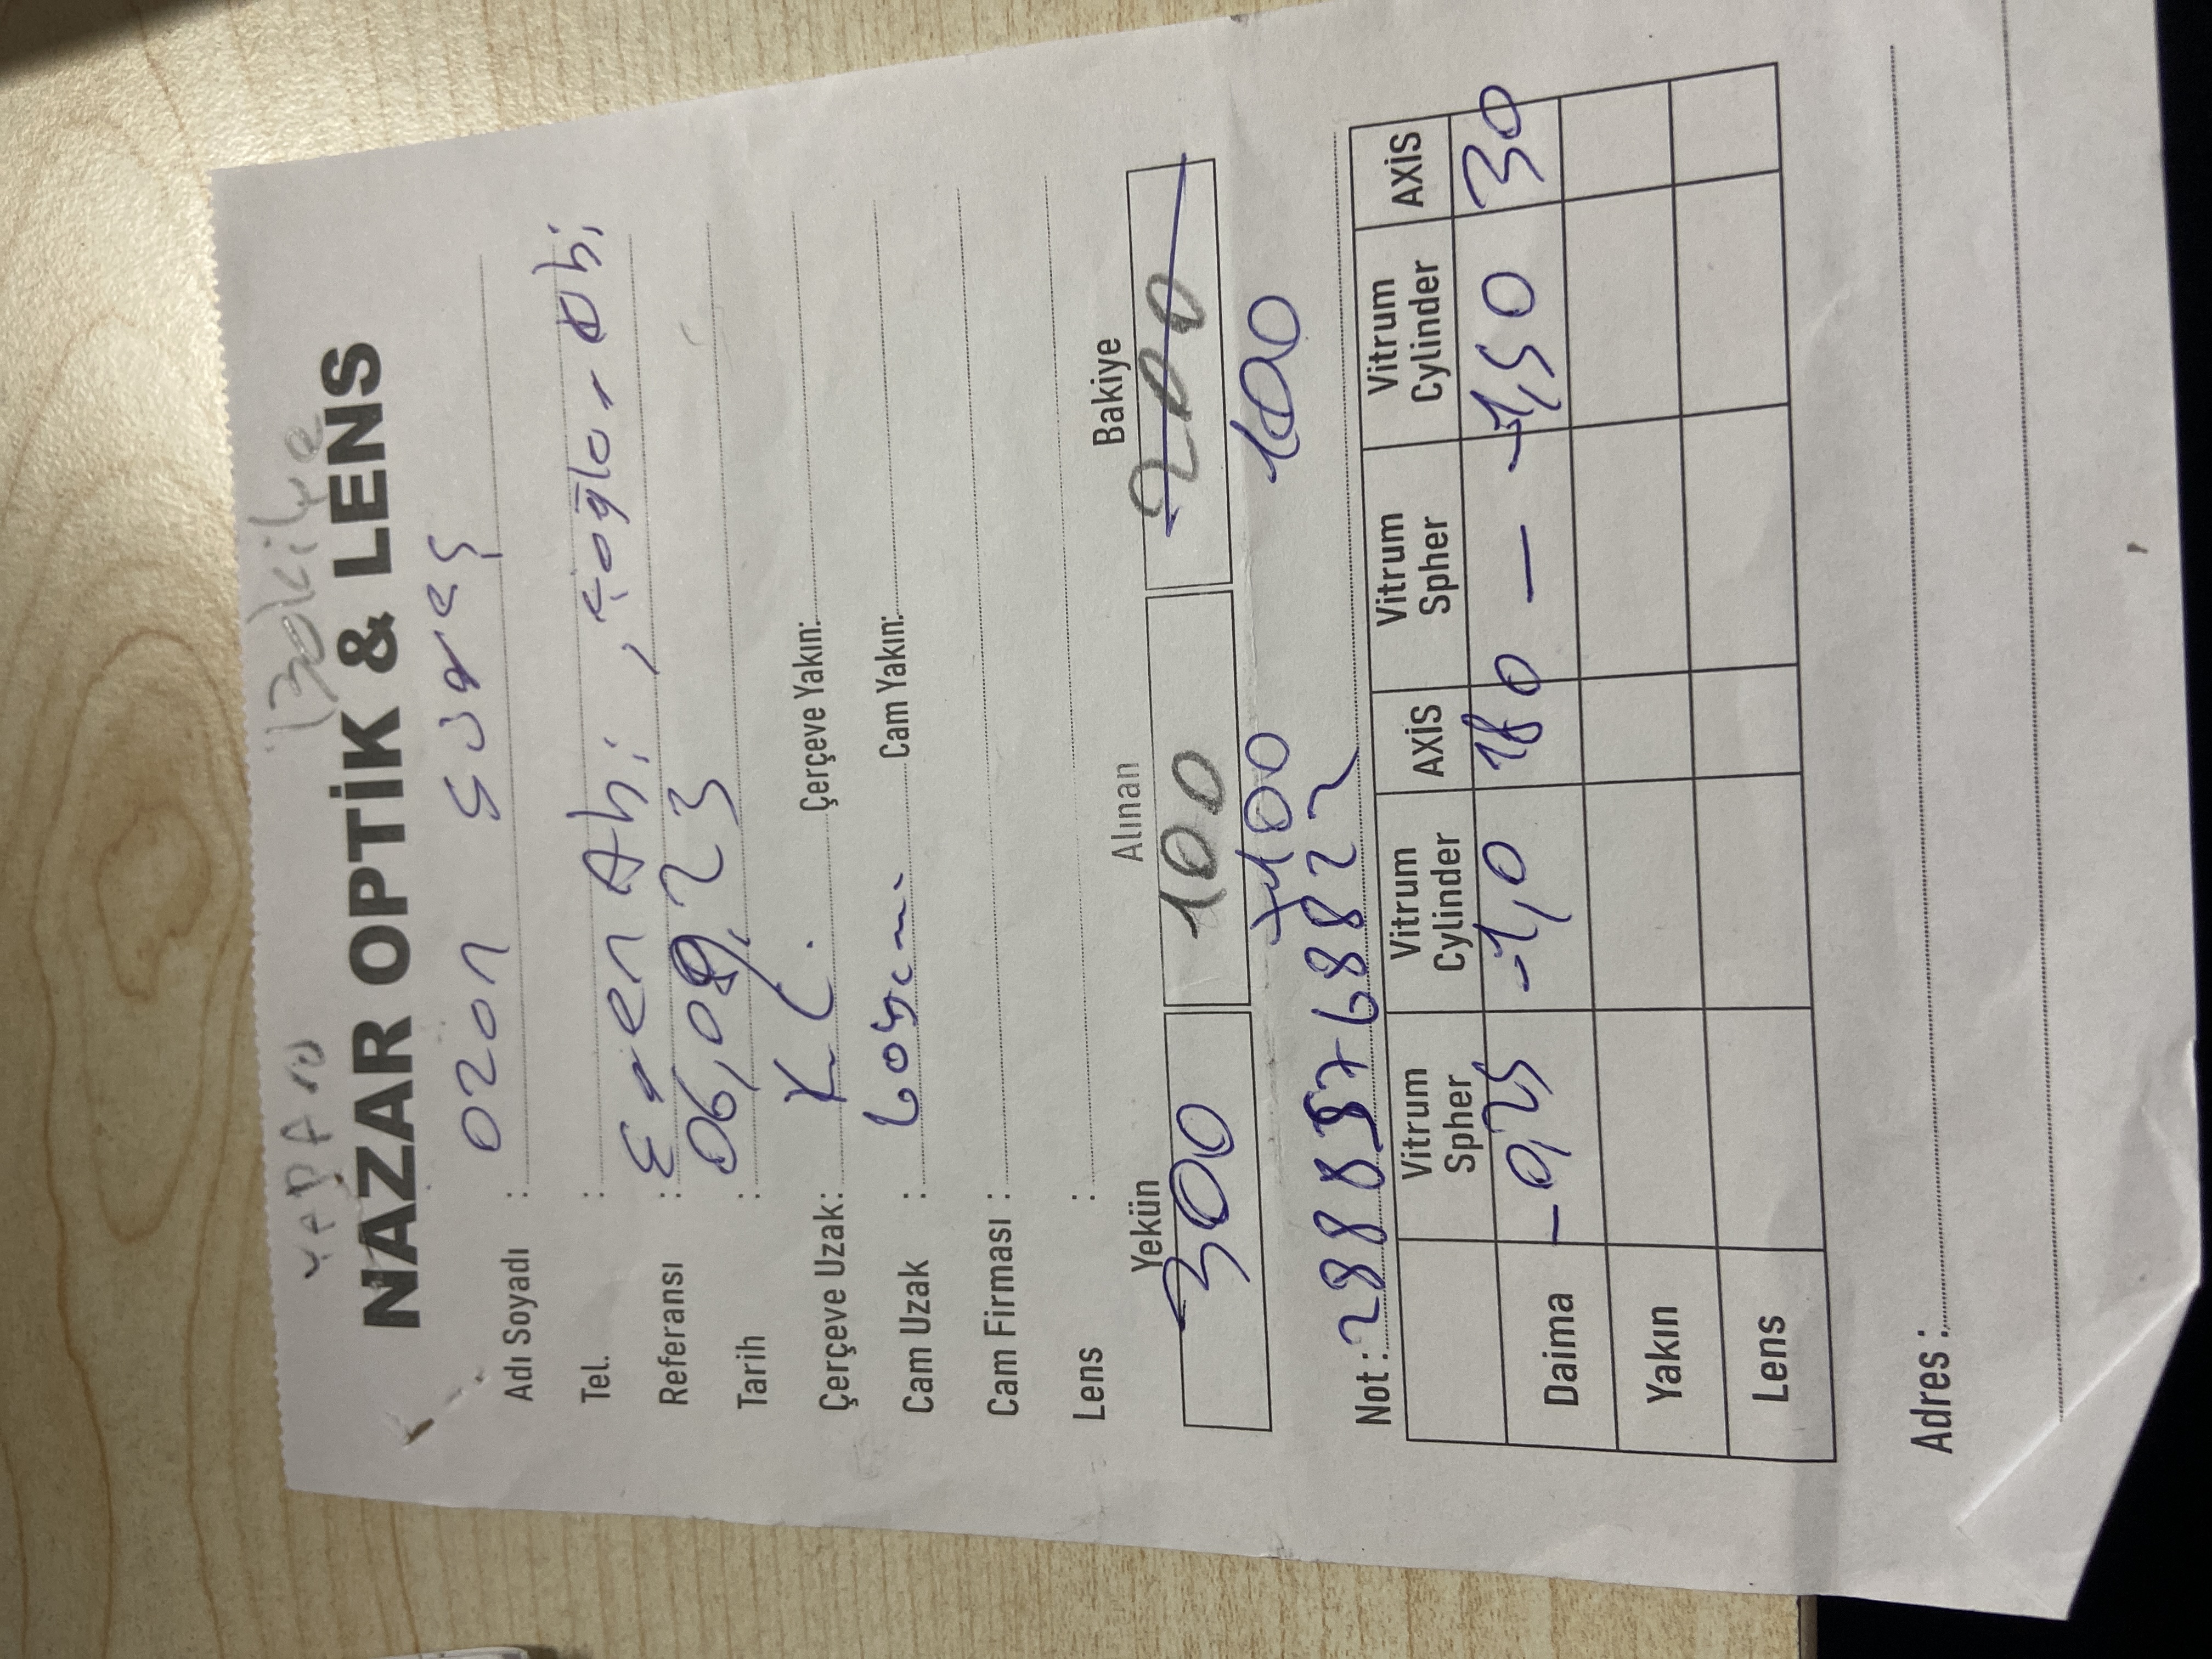 Bakiye
NAZAR OPTİK & LENS
Adı Soyadı : Ozan Güreş
Tel. :
Referansı : Eren Abi, Çağlar Abi
Tarih : 06,09,23
Çerçeve Uzak: K C. Çerçeve Yakın:
Cam Uzak : Cam Yakın:
Cam Firması :
Lens :
Yekün Alınan Bakiye
300 100 200
+100 100
Not : 28883768822
Vitrum Spher Vitrum Cylinder AXİS Vitrum Spher Vitrum Cylinder AXİS
Daima -0,25 -1,0 180 — -1,50 30
Yakın
Lens
Adres :